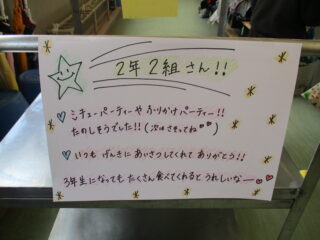 2年2組さん!!
シチューパーティーや ふりかけパーティー!!
たのしそうでした!!(次はさそってね♥♥)
いつも げんきに あいさつしてくれて ありがとう!!
3年生になっても たくさん食べてくれると うれしいなー♥♥